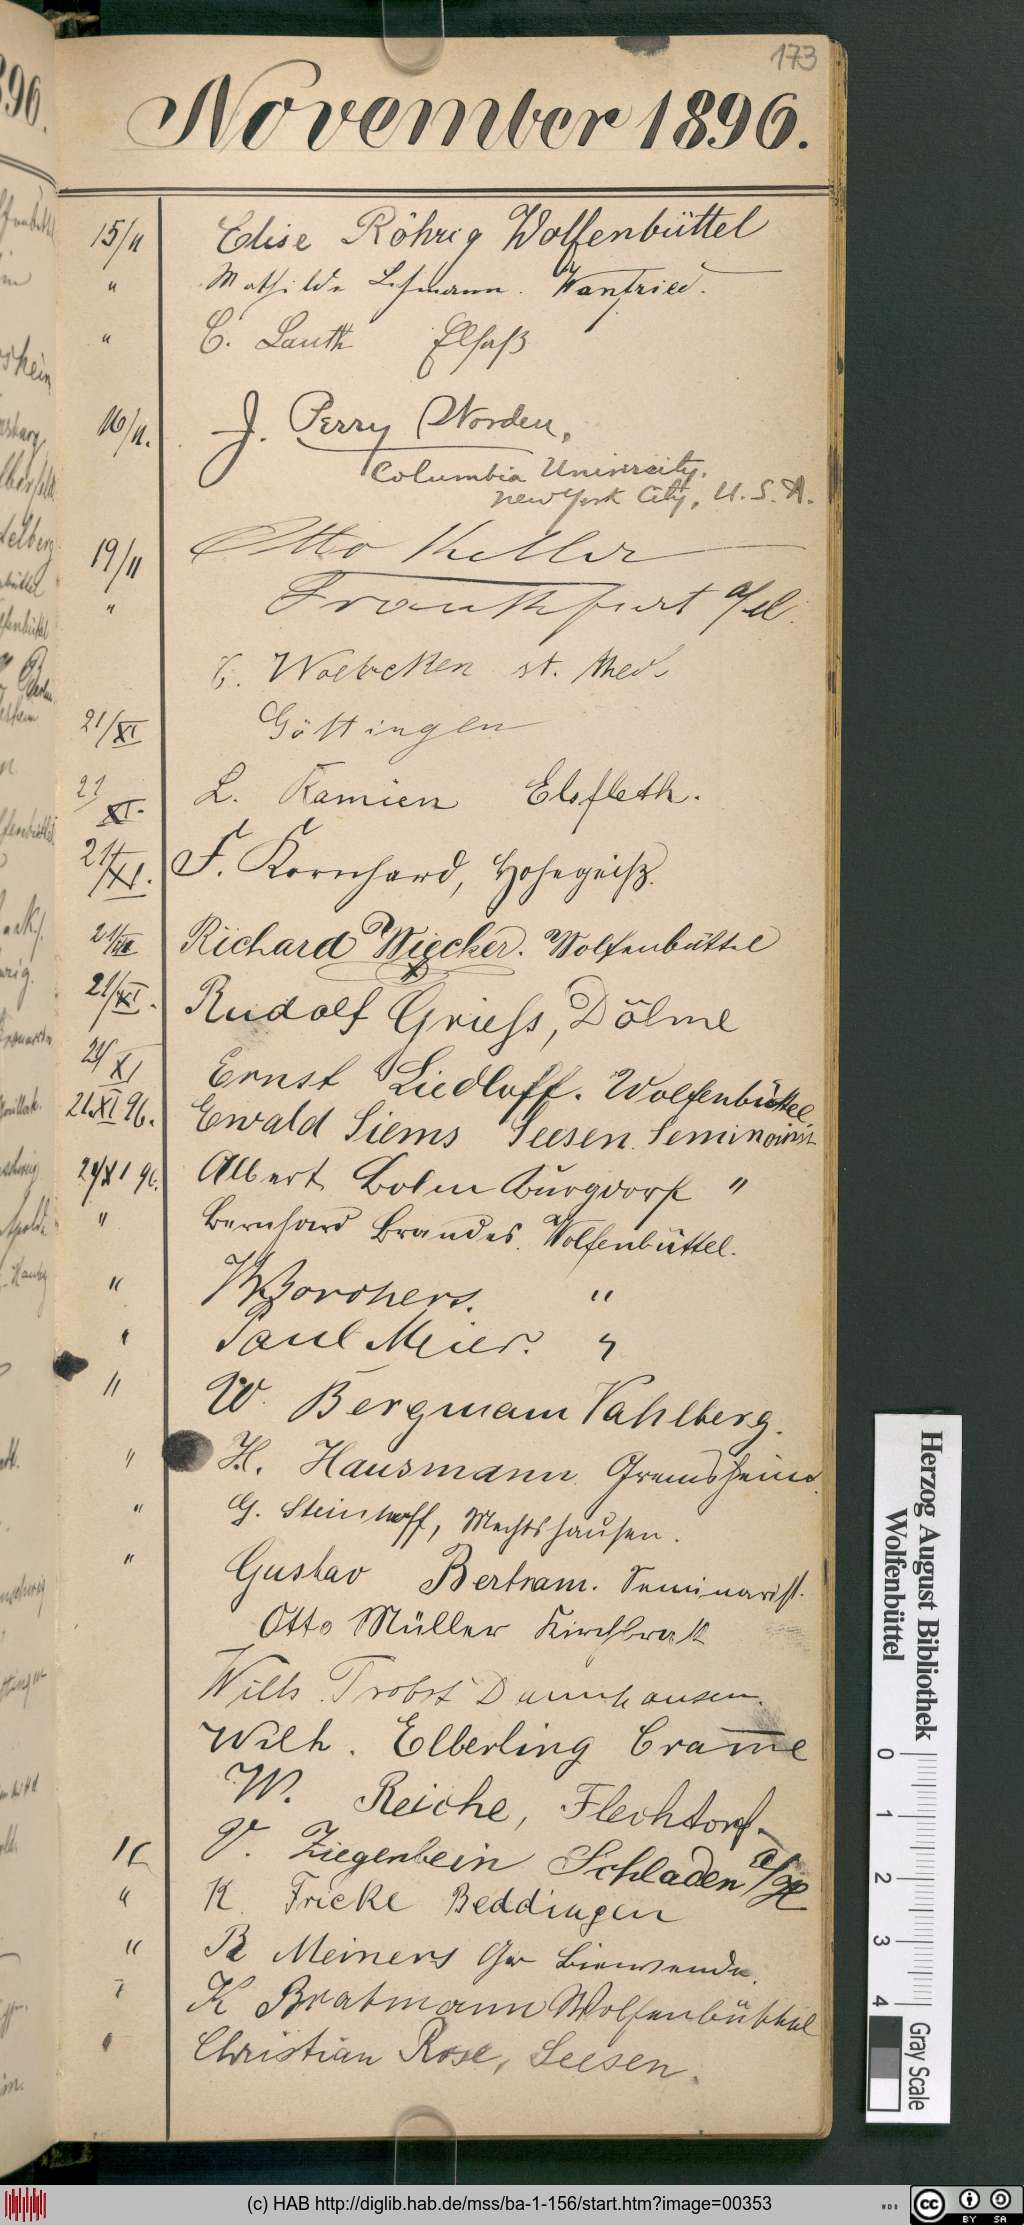 173
November 1896.
15/11 Elise Röhrig Wolfenbüttel
" Mathilde Lehmann. Wanfried.
" C. Lauth Elsaß
16/11. J. Perry Worden,
Columbia University,
New York City, U. S. A.
19/11 Otto Keller
" Frankfurt a/M.
C. Woebcken st. theol.
21/XI Göttingen
21/XI. L. Ramien Elsfleth.
21/XI. F. Kornhard, Hohegeiß.
21/XI Richard Wiecker. Wolfenbüttel
21/XI. Rudolf Griess, Dölme
21/XI Ernst Liedloff. Wolfenbüttel
21.XI 96. Ewald Siems Seesen. Seminarist
21/XI 96. Albert Bolm Burgdorf "
" Bernhard Brandes. Wolfenbüttel.
" W Borchers. "
" Paul Meier. "
" W. Bergmann Vahlberg.
" H. Hausmann Gremsheim.
" G. Steinhoff, Mechtshausen.
" Gustav Bertram. Seminarist.
Otto Müller Kirchbrak
Willy Probst Dannhausen.
Wilh. Elberling Cramme
W. Reiche, Flechtorf.
V. Ziegenbein Schladen a/H
" K. Fricke Beddingen
" R Meiners Gr Biewende.
K Bratmann Wolfenbüttel
" Christian Rose, Seesen.
Herzog August Bibliothek
Wolfenbüttel
0 1 2 3 4
Gray Scale
(c) HAB http://diglib.hab.de/mss/ba-1-156/start.htm?image=00353
WDB
CC BY SA